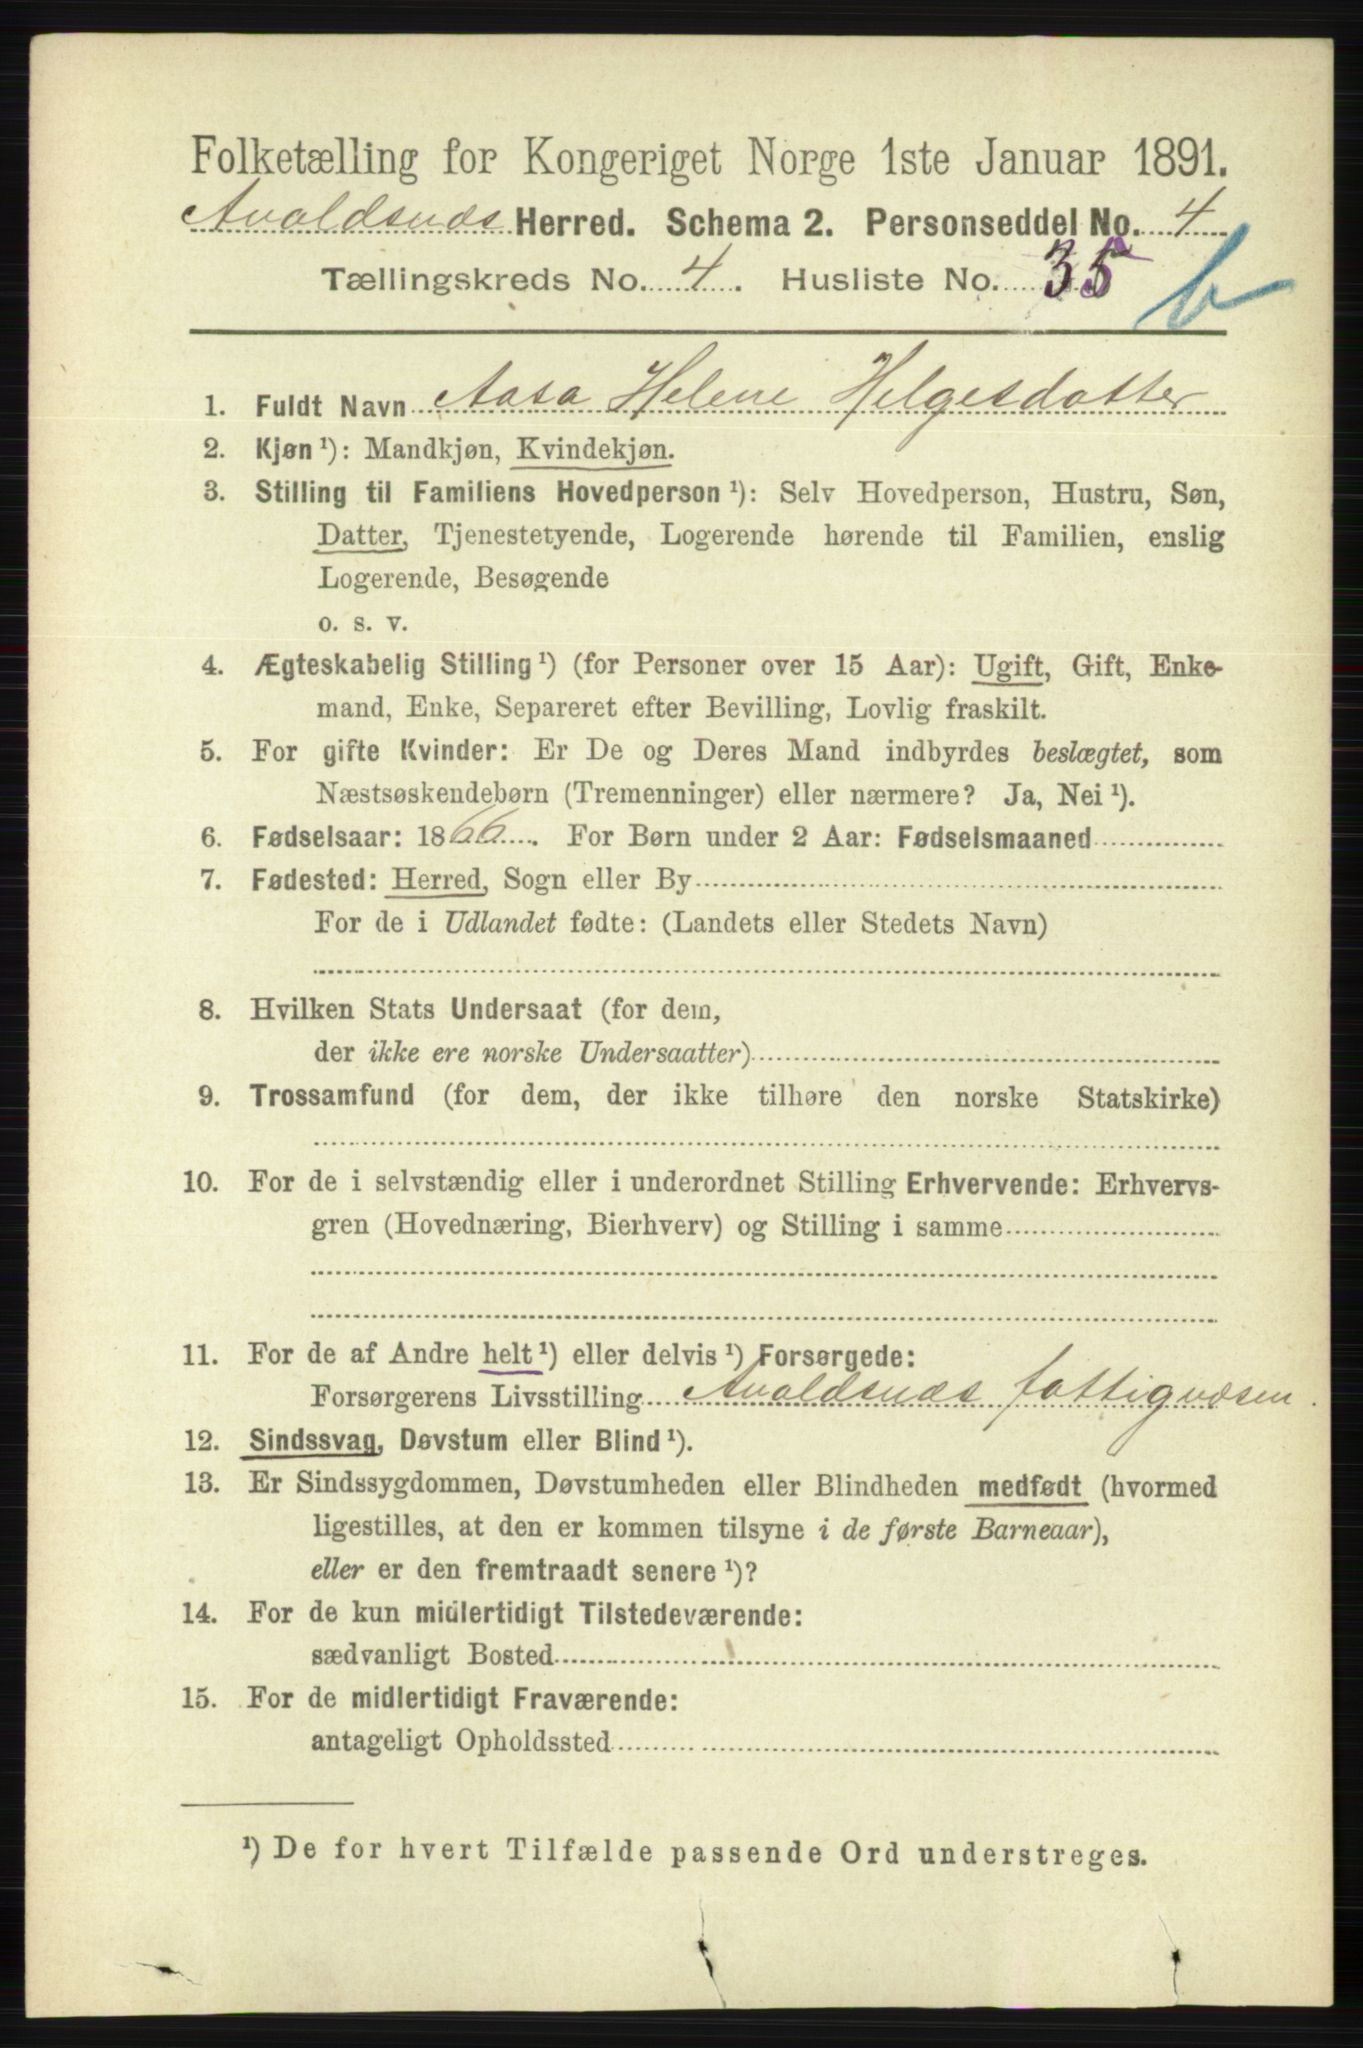 Folketælling for Kongeriget Norge 1ste Januar 1891.
Avaldsnæs Herred. Schema 2. Personseddel No. 4
Tællingskreds No. 4. Husliste No. 35 b
1. Fuldt Navn Aasa Helene Helgesdatter
2. Kjøn ¹): Mandkjøn, Kvindekjøn.
3. Stilling til Familiens Hovedperson ¹): Selv Hovedperson, Hustru, Søn,
Datter, Tjenestetyende, Logerende hørende til Familien, enslig
Logerende, Besøgende
o. s. v.
4. Ægteskabelig Stilling ¹) (for Personer over 15 Aar): Ugift, Gift, Enke-
mand, Enke, Separeret efter Bevilling, Lovlig fraskilt.
5. For gifte Kvinder: Er De og Deres Mand indbyrdes beslægtet, som
Næstsøskendebørn (Tremenninger) eller nærmere? Ja, Nei ¹).
6. Fødselsaar: 1866. For Børn under 2 Aar: Fødselsmaaned
7. Fødested: Herred, Sogn eller By
For de i Udlandet fødte: (Landets eller Stedets Navn)
8. Hvilken Stats Undersaat (for dem,
der ikke ere norske Undersaatter)
9. Trossamfund (for dem, der ikke tilhøre den norske Statskirke)
10. For de i selvstændig eller i underordnet Stilling Erhvervende: Erhvervs-
gren (Hovednæring, Bierhverv) og Stilling i samme
11. For de af Andre helt ¹) eller delvis ¹) Forsørgede:
Forsørgerens Livsstilling Avaldsnæs fattigvæsen.
12. Sindssvag, Døvstum eller Blind ¹).
13. Er Sindssygdommen, Døvstumheden eller Blindheden medfødt (hvormed
ligestilles, at den er kommen tilsyne i de første Barneaar),
eller er den fremtraadt senere ¹)?
14. For de kun midlertidigt Tilstedeværende:
sædvanligt Bosted
15. For de midlertidigt Fraværende:
antageligt Opholdssted
¹) De for hvert Tilfælde passende Ord understreges.